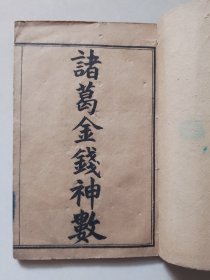 諸葛金錢神數